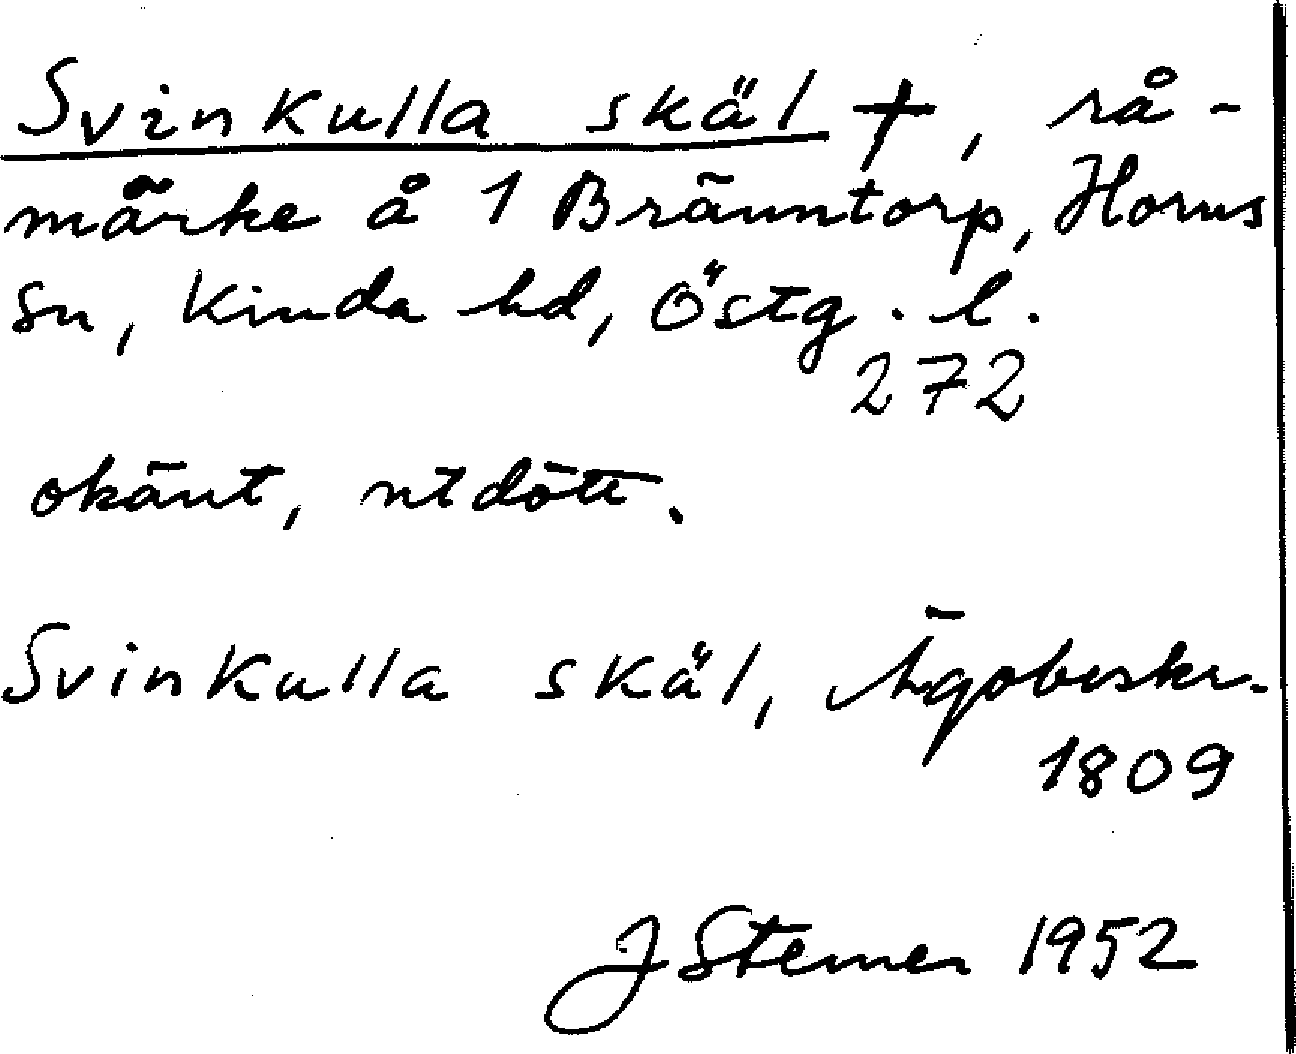 Svinkulla skäl †, rå-
märke å 1 Bränntorp, Horns
sn, Kinda hd, Östg. l.
272
okänt, utdött.
Svinkulla skäl, Ägobeskr.
1809
J Sterner 1952